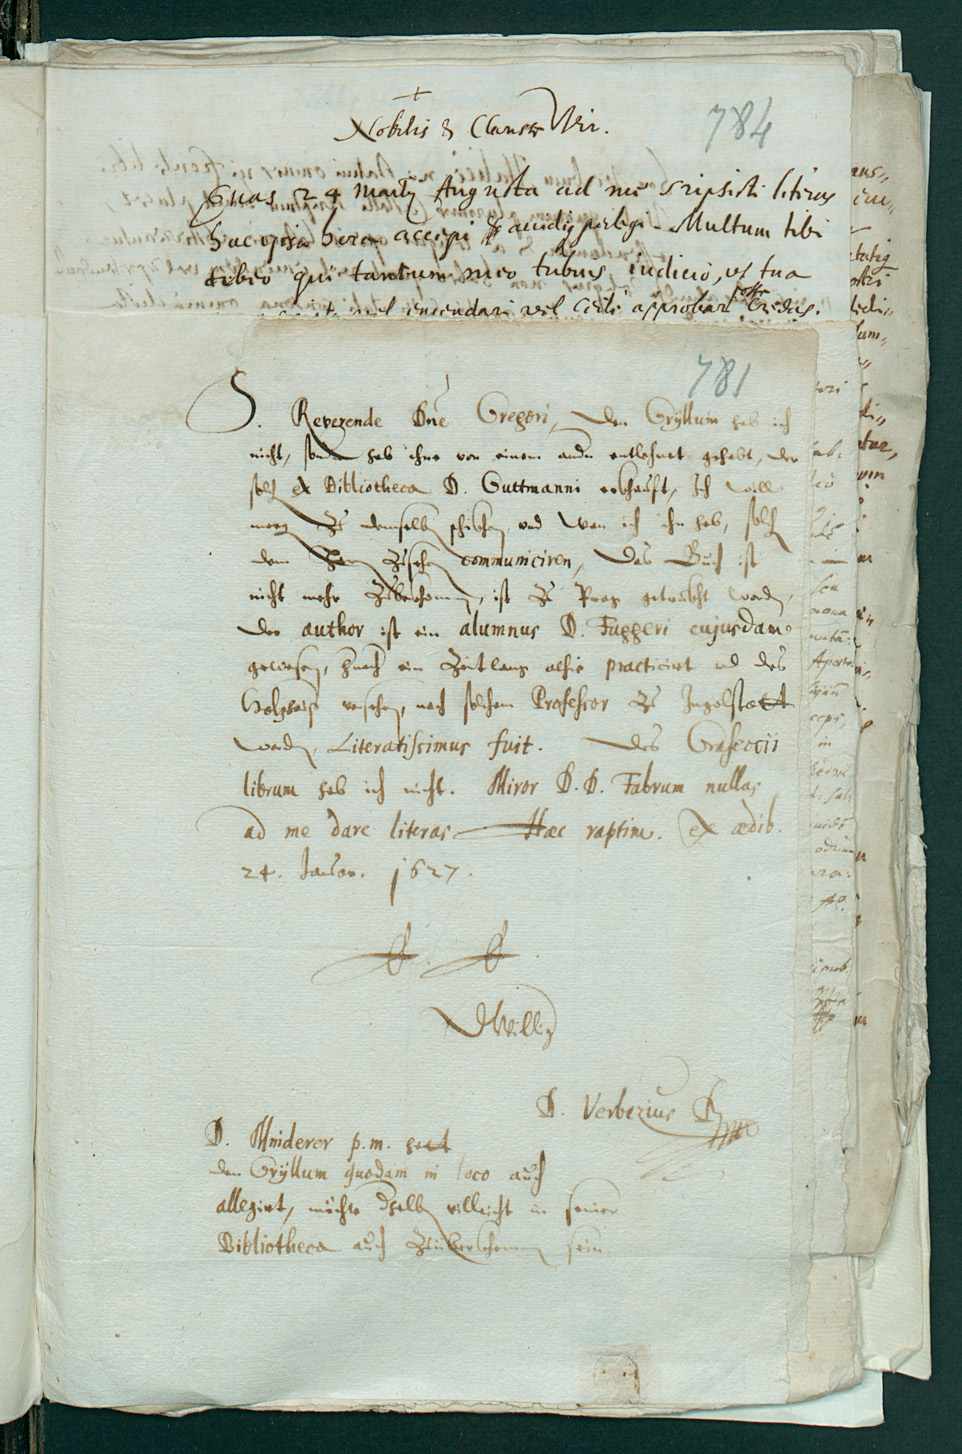 +
Nobilis & Clariss. Vir.
784
Quas 24 Martij Augusta ad me scripsisti literas
huc ipsa hora accepi & auidus perlegi. Multum tibi
debeo qui tantum meo tribuis iudicio, ut tua
vel emendari vel certe approbari posse credas.
781
S. Reverende Dne Gregori, Den Gryllum hab ich
nicht, sonder hab ihne von einem andn entlehnet gehabt, der
solch ex Bibliotheca D. Guttmanni erkhaufft, Ich will
morg zu demselb schickhen, und wan ich ihn hab, solch
dem Herrn communiciren, Das Buch ist
nicht mehr zubekhomen, ist zu Prag getrukht word,
der author ist ein alumnus D. Fuggeri cujusdam
gewesen, hnach ein Zeitlang alhie practicirt und des
Holzhaus versehen, nach solchem Professor zu Ingolstatt
word, Literatissimus fuit. Des Graseccii
librum hab ich nicht. Miror D. D. Fabrum nullas
ad me dare literas Haec raptim. Ex aedib.
24. Januar. 1627.
DWillig
D. Verbezius D
D. Minderer p. m. hatt
den Gryllum quodam in loco auch
allegirt, möchte dselb villeicht in seiner
Bibliotheca auch zubekhomen sein